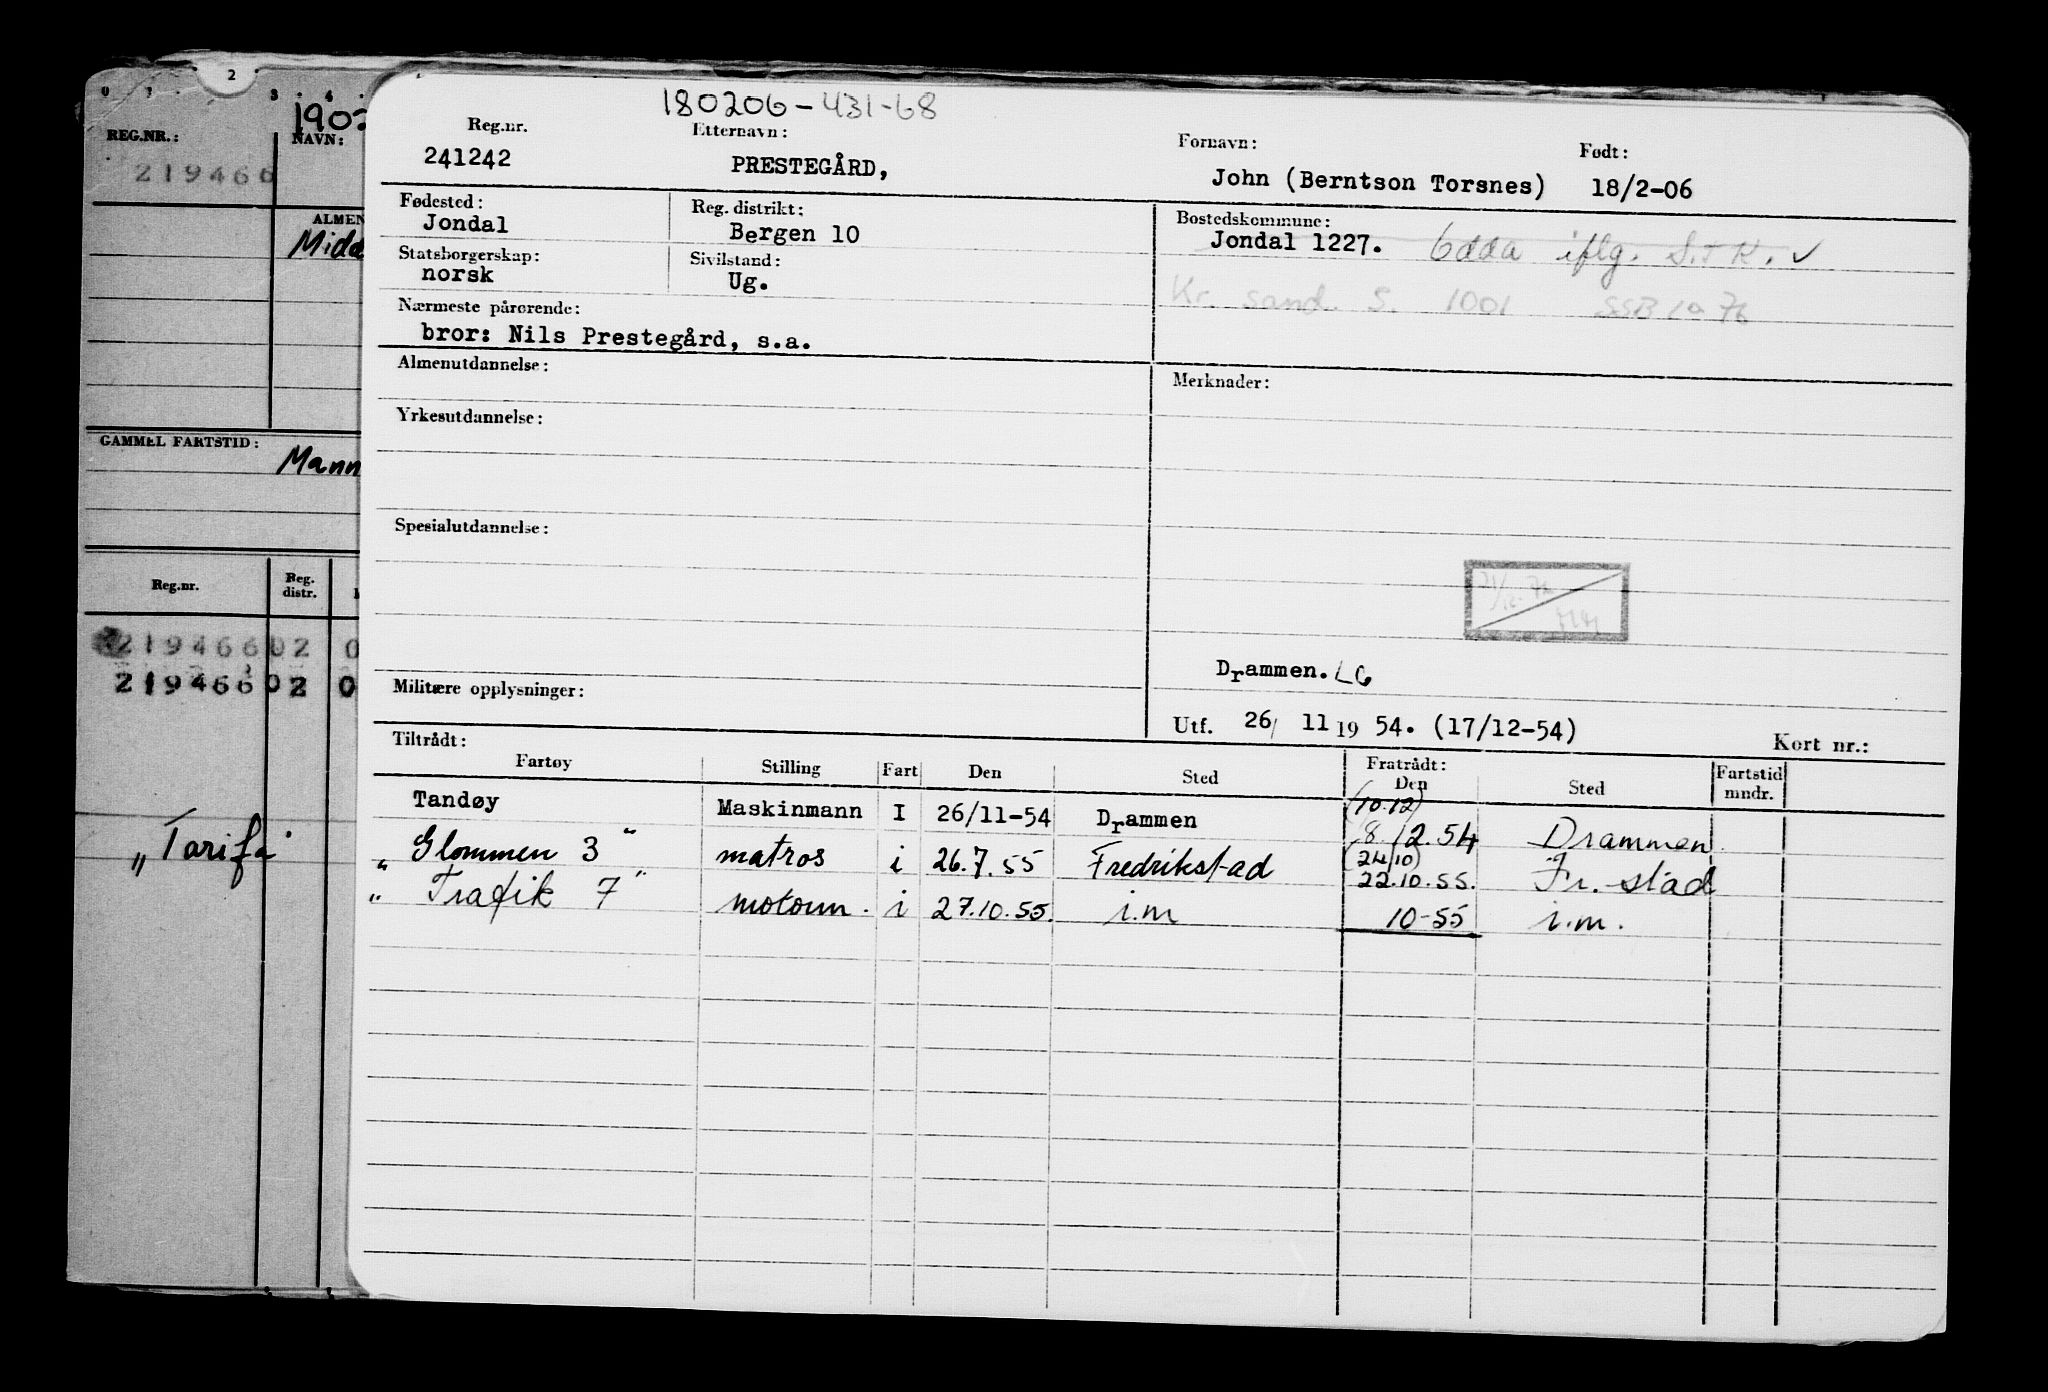 2
0 1 3 4
1902
REG.NR.:
NAVN:
219466
ALMEN
Midd
GAMMEL FARTSTID:
Mann
Reg.nr.
Reg. distr.
219466 02 0
219466 02 0
„Tarifa
180206-431-68
Reg.nr. Etternavn: Fornavn: Født:
241242 PRESTEGÅRD, John (Berntson Torsnes) 18/2-06
Fødested: Reg. distrikt: Bostedskommune:
Jondal Bergen 10 Jondal 1227. Odda iflg. S.T K. ✓
Statsborgerskap: Sivilstand:
norsk Ug. Kr. sand. S. 1001 SSB 10 76
Nærmeste pårørende:
bror: Nils Prestegård, s.a.
Almenutdannelse: Merknader:
Yrkesutdannelse:
Spesialutdannelse:
Drammen. LG
Militære opplysninger:
Utf. 26/ 11 19 54. (17/12-54) Kort nr.:
Tiltrådt: Fratrådt:
Fartøy Stilling Fart Den Sted Den Sted Fartstid mndr.
(10.12)
Tandøy Maskinmann I 26/11-54 Drammen 8.12.54 Drammen
(24/10)
„Glommen 3" matros i 26.7.55 Fredrikstad 22.10.55. Fr.stad
„Trafik 7" motorm. i 27.10.55. i.m 10-55 i.m.